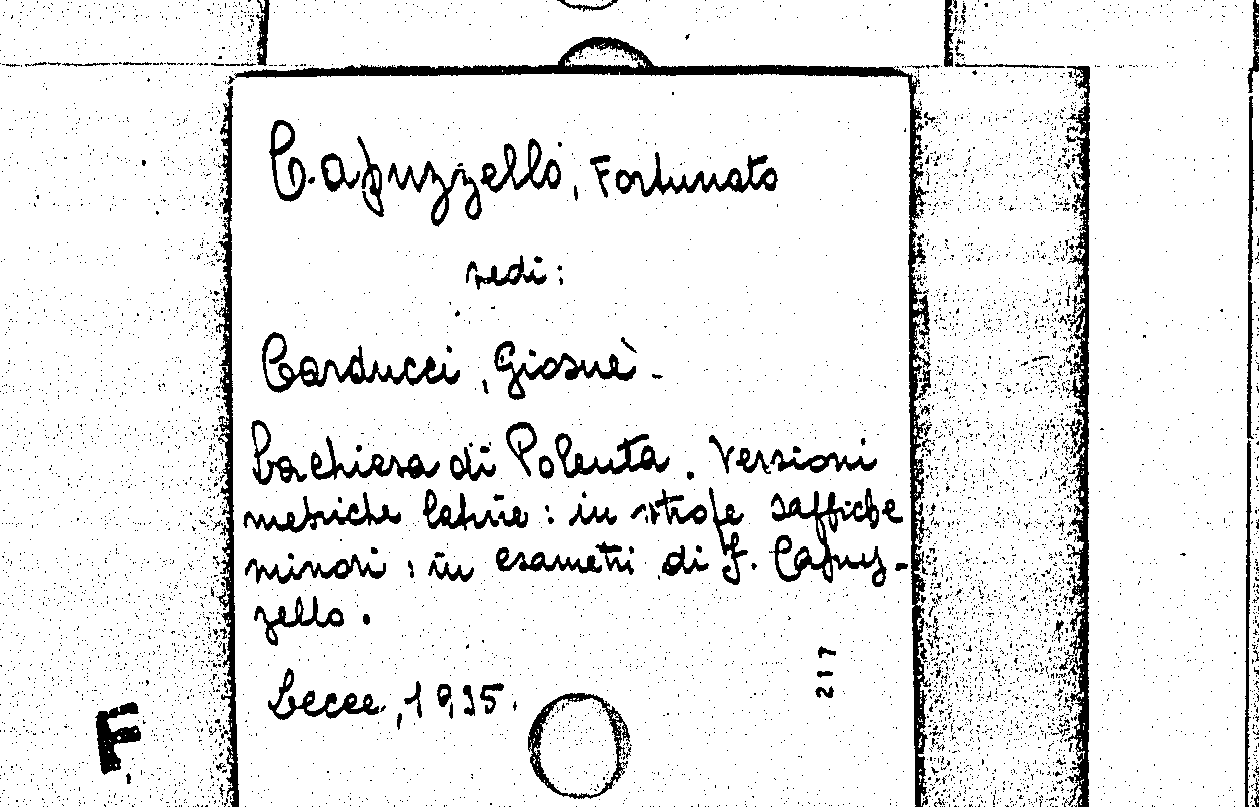 Capuzzello, Fortunato
vedi:
Carducci, Giosuè -
La chiesa di Polenta. Versioni
metriche latine: in strofe saffiche
minori; in esametri di F. Capuz-
zello.
Lecce, 1935.
217
F